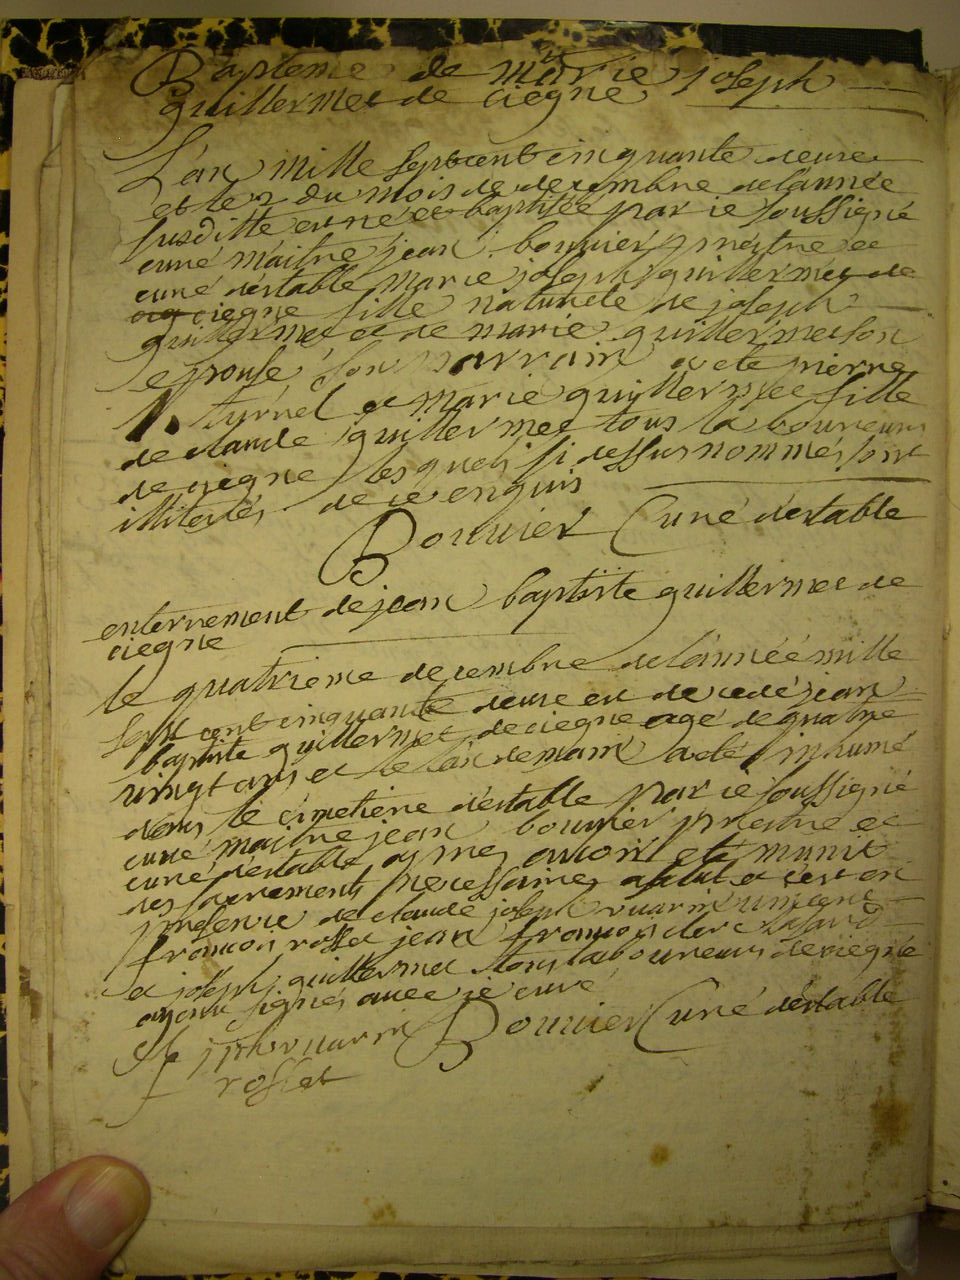 Bapteme de marie joseph
guillermet de ciegne
L'an mille sept cent cinquante deuxe
et le 2 du mois de decembre de lannée
susditte est né et baptisée par ie soussigné
curé maitre jean bouvier prestre et
curé destable marie joseph guillermet de
ciegne fille naturele de joseph
guillermet et de marie guillermet son
epouse son parrain a eté pierre
turnel et marie guillermet fille
de claude guillermet tous laboureurs
de ciegne lesquels si dessus nommés sont
illiterés de ce enquis
Bouvier Curé destable
enterrement de jean baptiste guillermet de
ciegne
le quatrieme decembre de lannéé mille
sept cent cinquante deuxe est decedé jean
baptiste guillermet de ciegne agé de quatre
vingt ans et le landemain a eté inhumé
dans le cimetiere destable par ie soussigné
curé maitre jean bouvier prestre et
curé destable apres avoir eté munit
des sacrements necessaires et c'est en
presence de claude joseph vuarin vincent
francois rosset jean francois clerc
et joseph guillermet tous laboureurs de ciegne
ayant signés avec ie curé
vuarin Bouvier Curé destable
rosset